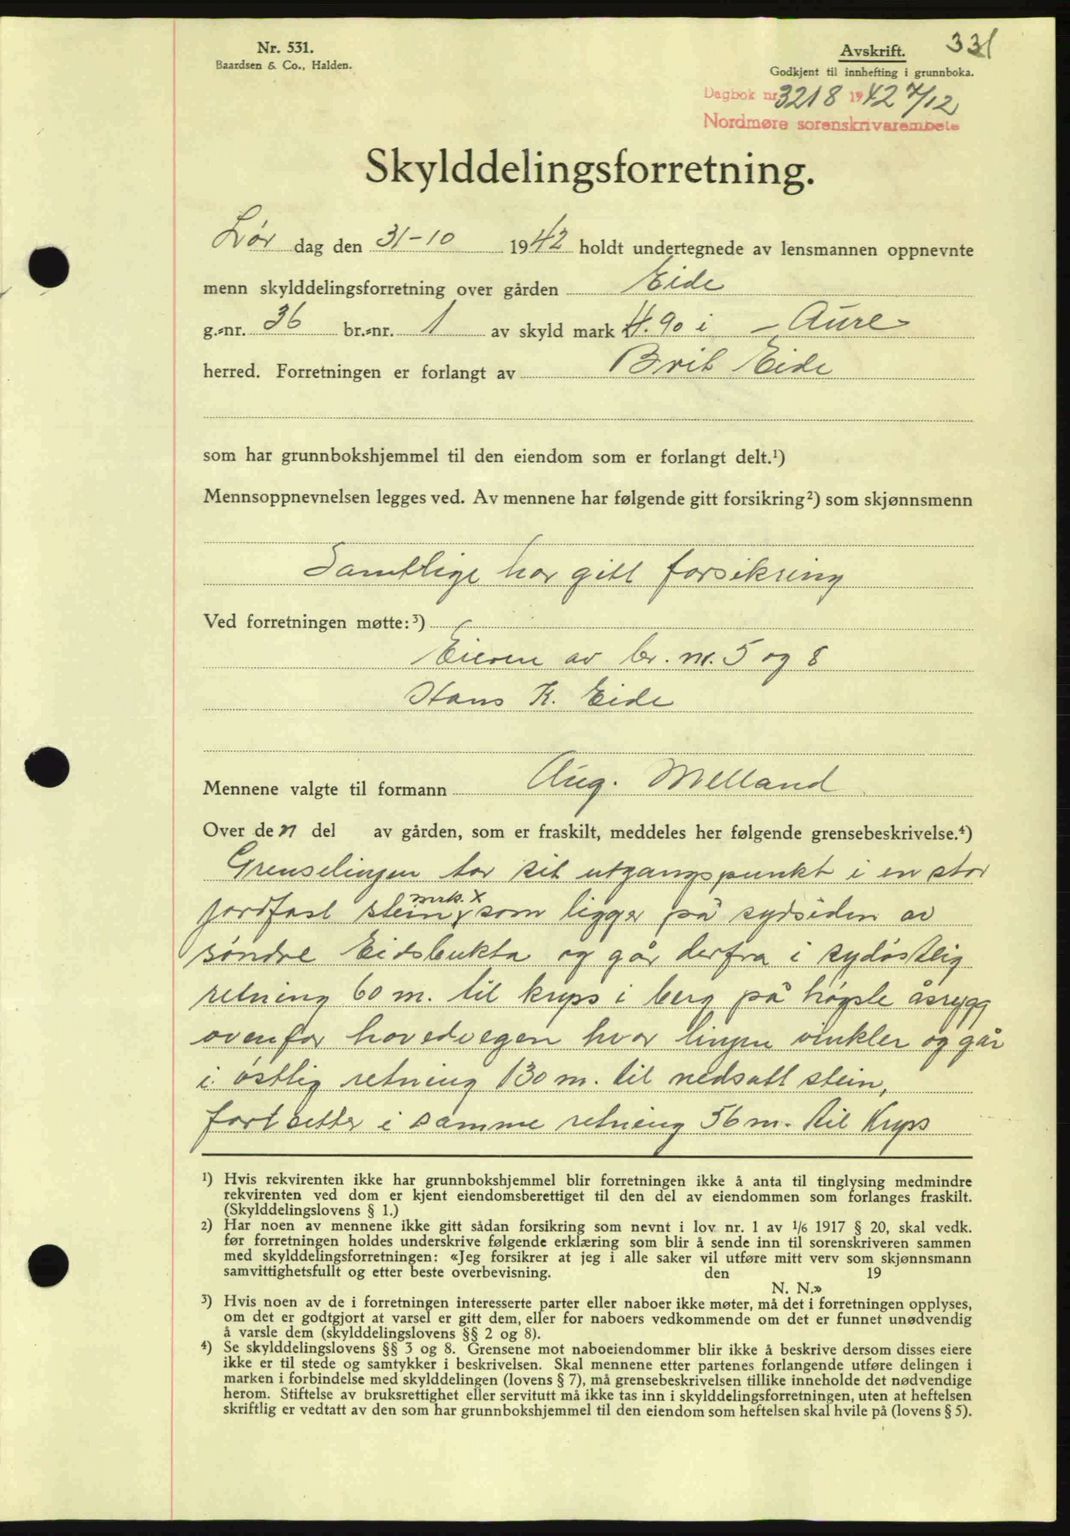 Nr. 531.
Baardsen & Co., Halden.
Avskrift.
331
Godkjent til innhefting i grunnboka.
Dagbok nr 3218 1942 7/12
Nordmøre sorenskrivarembete
Skylddelingsforretning.
Lør dag den 31-10 1942 holdt undertegnede av lensmannen oppnevnte
menn skylddelingsforretning over gården Eide
g.-nr. 36 br.-nr. 1 av skyld mark 4.90 i - Aure -
herred. Forretningen er forlangt av Brit Eide
som har grunnbokshjemmel til den eiendom som er forlangt delt.¹)
Mennsoppnevnelsen legges ved. Av mennene har følgende gitt forsikring²) som skjønnsmenn
Samtlige har gitt forsikring
Ved forretningen møtte:³)
Eieren av br. nr. 5 og 8
Hans K. Eide
Mennene valgte til formann Aug. Melland
Over den del av gården, som er fraskilt, meddeles her følgende grensebeskrivelse.⁴)
Grenselinjen tar sit utgangspunkt i en stor
jordfast stein mrk. x som ligger på sydsiden av
søndre Eidsbukta og går derfra i sydøstlig
retning 60 m. til kryss i berg på høgste åsrygg
ovenfor hovedvegen hvor linjen vinkler og går
i østlig retning 130 m. til nedsatt stein,
fortsetter i samme retning 56 m. til kryss
¹) Hvis rekvirenten ikke har grunnbokshjemmel blir forretningen ikke å anta til tinglysing medmindre
rekvirenten ved dom er kjent eiendomsberettiget til den del av eiendommen som forlanges fraskilt.
(Skylddelingslovens § 1.)
²) Har noen av mennene ikke gitt sådan forsikring som nevnt i lov nr. 1 av 1/6 1917 § 20, skal vedk.
før forretningen holdes underskrive følgende erklæring som blir å sende inn til sorenskriveren sammen
med skylddelingsforretningen: «Jeg forsikrer at jeg i alle saker vil utføre mitt verv som skjønnsmann
samvittighetsfullt og etter beste overbevisning. den 19
N. N.»
³) Hvis noen av de i forretningen interesserte parter eller naboer ikke møter, må det i forretningen opplyses,
om det er godtgjort at varsel er gitt dem, eller for naboers vedkommende om det er funnet unødvendig
å varsle dem (skylddelingslovens §§ 2 og 8).
⁴) Se skylddelingslovens §§ 3 og 8. Grensene mot naboeiendommer blir ikke å beskrive dersom disses eiere
ikke er til stede og samtykker i beskrivelsen. Skal mennene etter partenes forlangende utføre delingen i
marken i forbindelse med skylddelingen (lovens § 7), må grensebeskrivelsen tillike inneholde det nødvendige
herom. Stiftelse av bruksrettighet eller servitutt må ikke tas inn i skylddelingsforretningen, uten at heftelsen
skriftlig er vedtatt av den som har grunnbokshjemmel til den eiendom som heftelsen skal hvile på (lovens § 5).